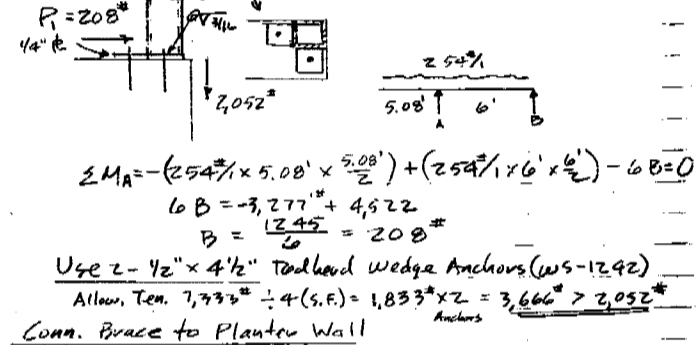 P₁ = 208#
3/16
1/4" ℄
2,052#
254#/1
5.08'
6'
A
B
ΣMA = -(254#/1 x 5.08' x 5.08'/2) + (254#/1 x 6' x 6'/2) - 6B = 0
6B = -3,277'# + 4,522
B = 1245/6 = 208#
Use 2 - 1/2" x 4 1/2" Redhead Wedge Anchors (WS-1242)
Allow. Ten. 7,333# ÷ 4 (S.F.) = 1,833# x 2 = 3,666# > 2,052#
Anchors
Conn. Brace to Planter Wall